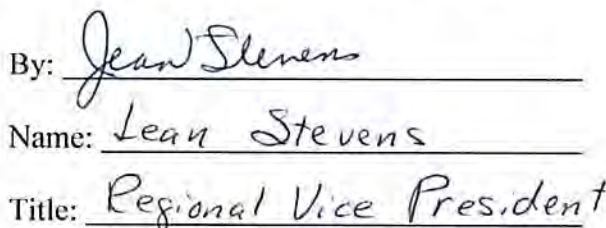 By: Jean Stevens
Name: Jean Stevens
Title: Regional Vice President